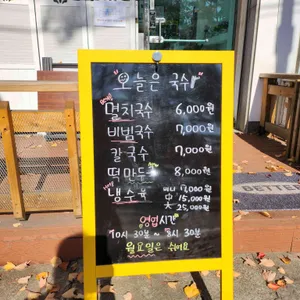 "오늘은 국수"
멸치국수 6,000원
비빔국수 7,000원
칼국수 7,000원
떡만두 8,000원
냉수육
中 15,000원
大 25,000원
영업시간
10시 30분 ~ 8시 30분
월요일은 쉬어요
BETTER